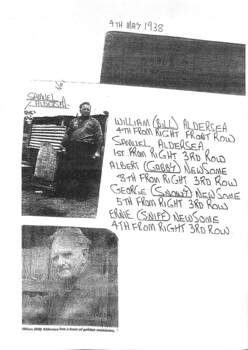 4TH MAY 1938
SAMUEL
ALDERSEA
WILLIAM (BILL) ALDERSEA
4TH FROM RIGHT FRONT ROW
SAMUEL ALDERSEA
1ST FROM RIGHT 3RD ROW
ALBERT (GOBBY) NEWSOME
8TH FROM RIGHT 3RD ROW
GEORGE (SNOWY) NEWSOME
5TH FROM RIGHT 3RD ROW
ERNIE (SNIFF) NEWSOME
4TH FROM RIGHT 3RD ROW
Aldersea has a host of golden memories.